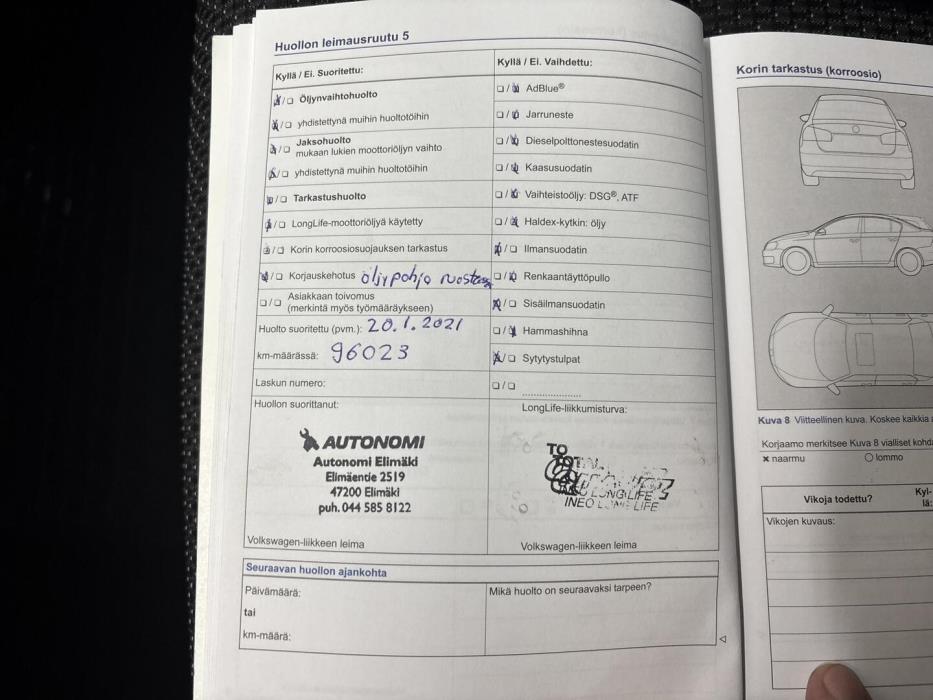 Huollon leimausruutu 5
Kyllä / Ei. Suoritettu:
☒/☐ Öljynvaihtohuolto
☒/☐ yhdistettynä muihin huoltotöihin
☒/☐ Jaksohuolto
mukaan lukien moottoriöljyn vaihto
☒/☐ yhdistettynä muihin huoltotöihin
☒/☐ Tarkastushuolto
☒/☐ LongLife-moottoriöljyä käytetty
☒/☐ Korin korroosiosuojauksen tarkastus
☒/☐ Korjauskehotus öljypohja ruostees
☐/☐ Asiakkaan toivomus
(merkintä myös työmääräykseen)
Huolto suoritettu (pvm.): 20.1.2021
km-määrässä: 96023
Laskun numero:
Huollon suorittanut:
AUTONOMI
Autonomi Elimäki
Elimäentie 2519
47200 Elimäki
puh. 044 585 8122
Volkswagen-liikkeen leima
Kyllä / Ei. Vaihdettu:
☐/☒ AdBlue®
☐/☒ Jarruneste
☐/☒ Dieselpolttonestesuodatin
☐/☒ Kaasusuodatin
☐/☒ Vaihteistoöljy: DSG®, ATF
☐/☒ Haldex-kytkin: öljy
☒/☐ Ilmansuodatin
☐/☒ Renkaantäyttöpullo
☒/☐ Sisäilmansuodatin
☐/☒ Hammashihna
☒/☐ Sytytystulpat
☐/☐ ....................
LongLife-liikkumisturva:
TO
TOTAL
LONG LIFE
INEO LONG LIFE
Volkswagen-liikkeen leima
Seuraavan huollon ajankohta
Päivämäärä:
tai
km-määrä:
Mikä huolto on seuraavaksi tarpeen?
Korin tarkastus (korroosio)
Kuva 8 Viitteellinen kuva. Koskee kaikkia
Korjaamo merkitsee Kuva 8 vialliset kohd
× naarmu
○ lommo
Vikoja todettu?
Kyl-
lä:
Vikojen kuvaus: